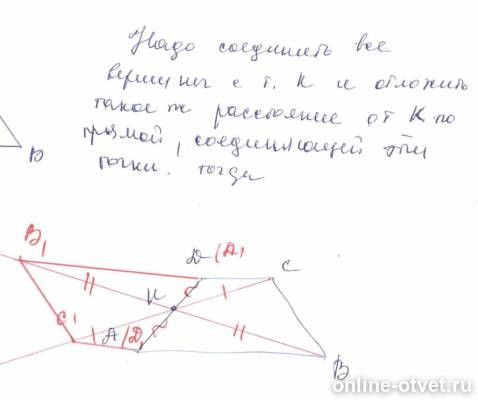 Надо соединить все
вершины с т. К и отложить
такое же расстояние от К по
прямой, соединяющей эти
точки. тогда
D
B₁
D (A₁
C
K
C₁
A (D₁
B
online-otvet.ru